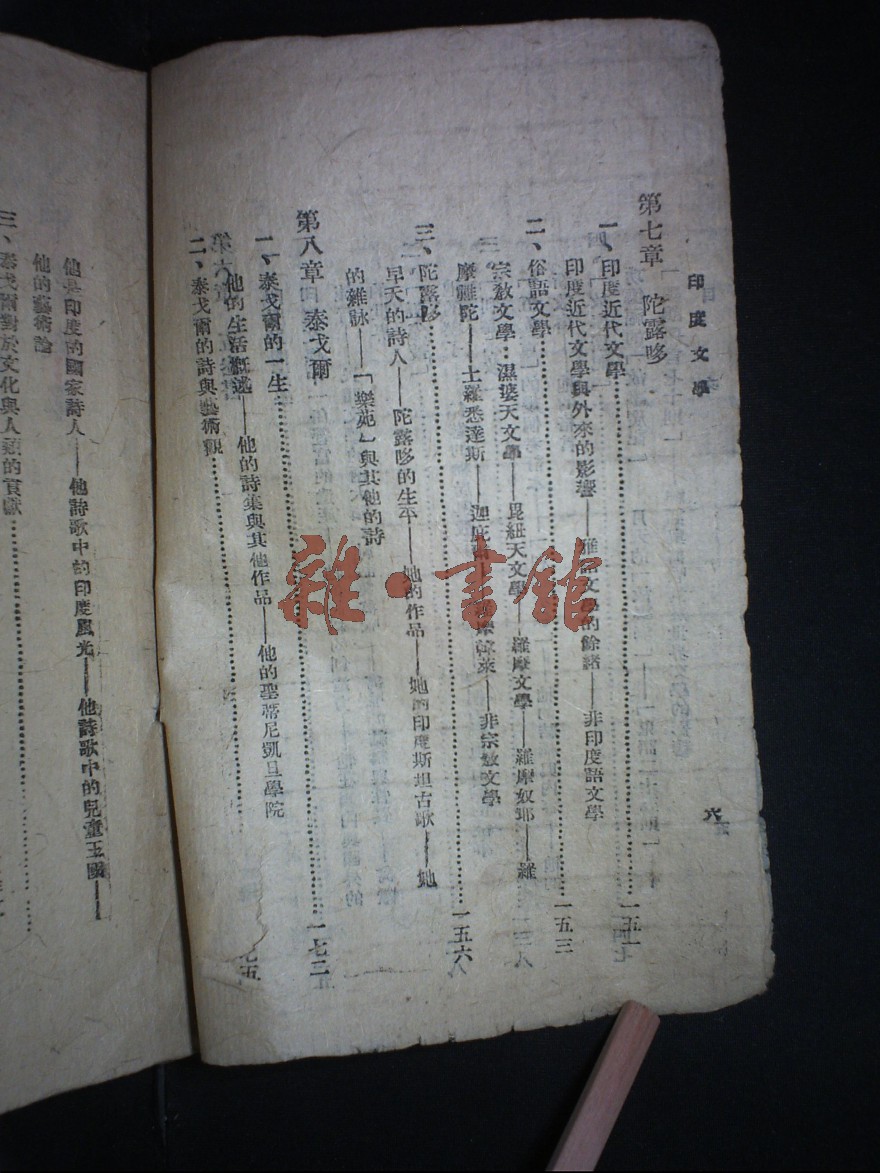 印度文學
六
第七章 陀露哆
一、印度近代文學 一五一
印度近代文學與外來的影響——雅語文學的餘緒——非印度語文學
二、俗語文學 一五三
宗敎文學：濕婆天文學——毘紐天文學——羅摩文學——羅摩奴耶——羅
摩難陀——土羅悉達斯——迦庇 非宗敎文學
三、陀露哆 一五六
早天的詩人——陀露哆的生平——她的作品——她的印度斯坦古歌——她
的雜詠——「樂苑」與其他的詩
第八章 泰戈爾
一、泰戈爾的一生 一七三
他的生活概述——他的詩集與其他作品——他的聖蒂尼凱旦學院
二、泰戈爾的詩與藝術觀
他是印度的國家詩人——他詩歌中的印度風光——他詩歌中的兒童王國——
他的藝術論
三、泰戈爾對於文化與人類的貢獻
雜·書館